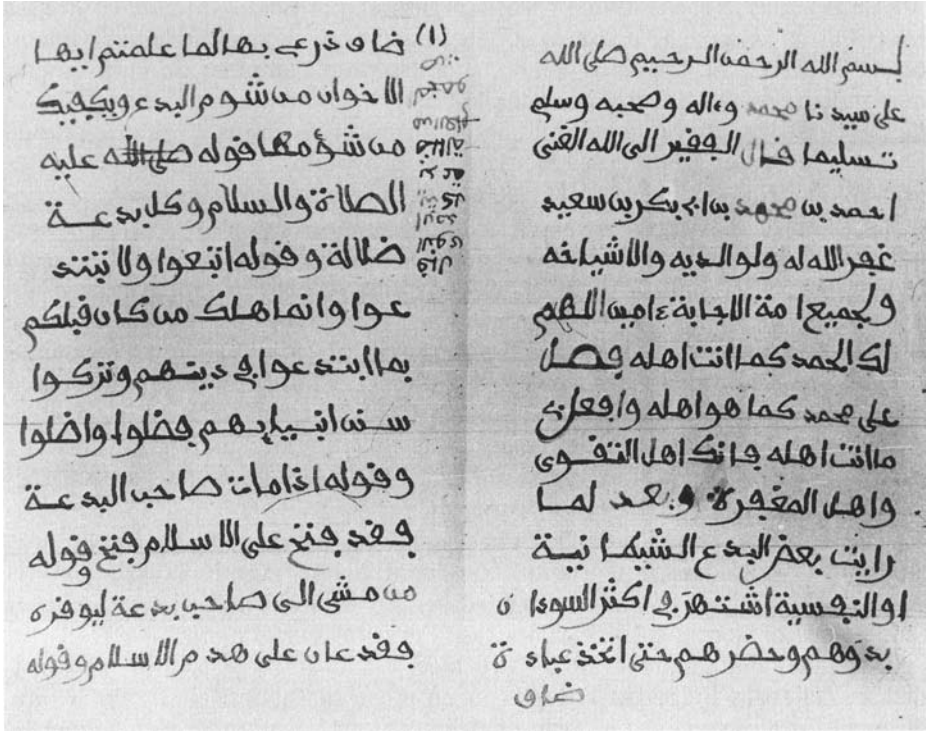 بسم الله الرحمن الرحيم صلى الله
على سيدنا محمد وءاله وصحبه وسلم
تسليما قال الفقير الى الله الغنى
احمد بن محمد بن ابى بكر بن سعيد
غفر الله له ولوالديه والاشياخه
ولجميع امة الاجابة ءامين اللهم
لك الحمد كما انت اهله فصل
على محمد كما هو اهله وافعل بى
ما انت اهله فانك اهل التقوى
واهل المغفرة وبعد لما
رايت بعض البدع الشيطانية
او النفسية اشتهر فى اكثر السودان
بدوهم وحضرهم حتى اتخذ عبادة
ضاق
(1) ضاق ذرعى بها لما علمتم ايها
الاخوان من شوم البدع ويكفيك
من شؤمها قوله عليه
الصلاة والسلام وكل بدعة
ضلالة وقوله اتبعوا ولا تبتد
عوا وانما هلك من كان قبلكم
بما ابتدعوا فى دينهم وتركوا
سنن انبيايهم فضلوا واضلوا
وقوله اذا مات صاحب البدعة
فقد فتح على الاسلام فتح وقوله
من مشى الى صاحب بدعة ليوقره
فقد عان على هدم الاسلام وقوله